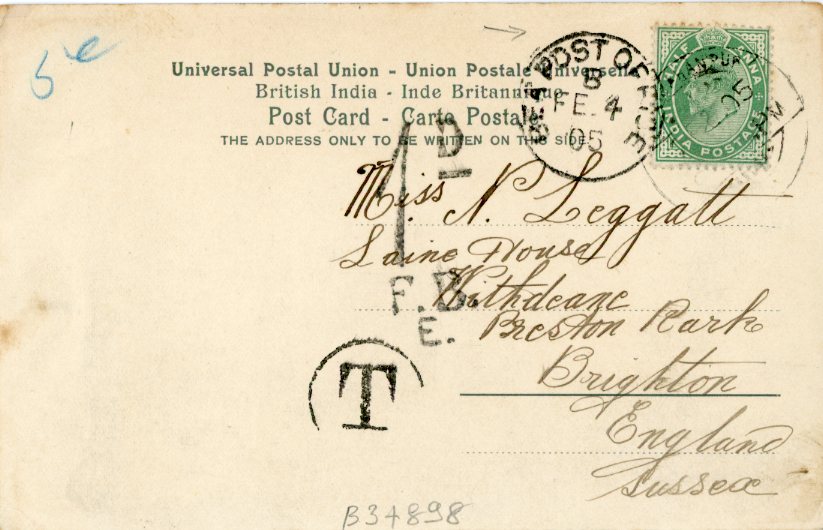 5c
Universal Postal Union - Union Postale Universelle
British India - Inde Britannique
Post Card - Carte Postale
THE ADDRESS ONLY TO BE WRITTEN ON THIS SIDE
SEA POST OFFICE
B
FE. 4
05
HALF ANNA
INDIA POSTAGE
05
PM
1D
Miss. N. Leggatt
Laine House
Withdeane
Preston Park
Brighton
England
Sussex
F.B.
E.
T
B34898